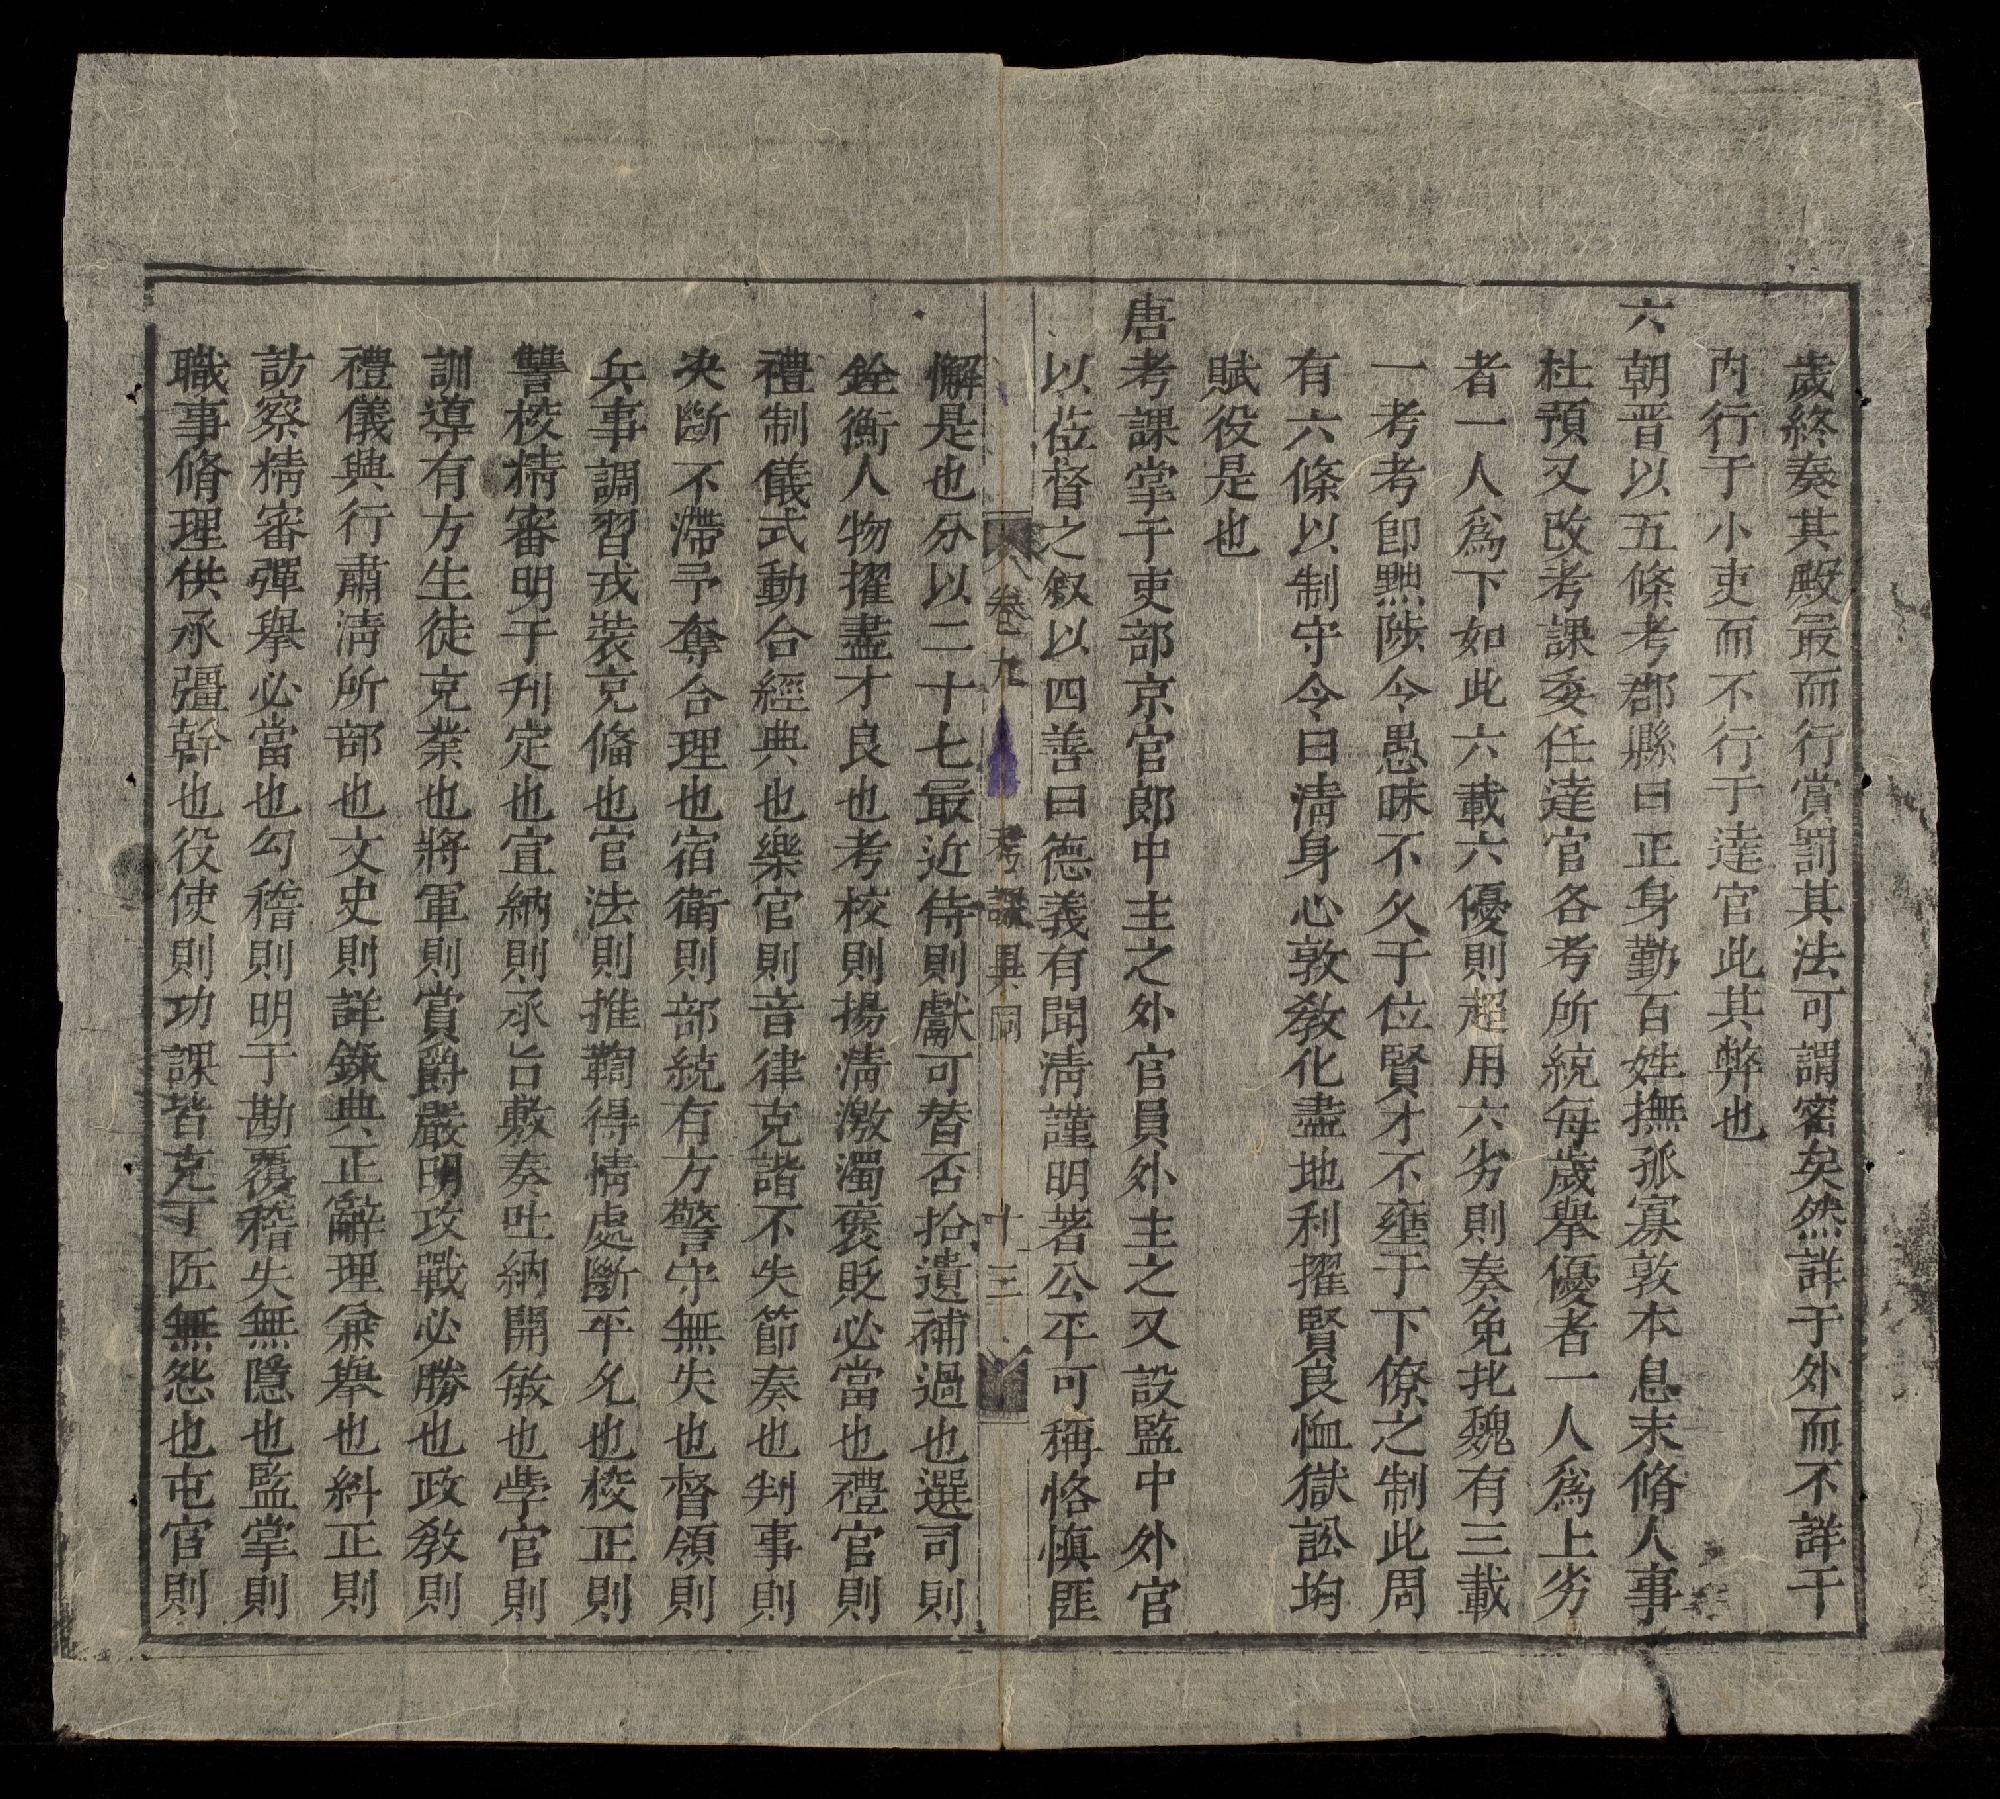 歲終奏其殿最而行賞罰其法可謂密矣然詳于外而不詳于
內行于小吏而不行于達官此其弊也
六朝晋以五條考郡縣曰正身勤百姓撫孤寡敦本息末脩人事
杜預又改考課委任達官各考所統每歲舉優者一人爲上劣
者一人爲下如此六載六優則超用六劣則奏免北魏有三載
一考考卽黜陟令愚昧不久于位賢才不壅于下僚之制北周
有六條以制守令曰淸身心敦敎化盡地利擢賢良恤獄訟均
賦役是也
唐考課掌于吏部京官郎中主之外官員外主之又設監中外官
以莅督之叙以四善曰德義有聞淸謹明著公平可稱恪愼匪
卷九 考課異同 十三
懈是也分以二十七最近侍則獻可替否拾遺補過也選司則
銓衡人物擢盡才良也考校則揚淸激濁褒貶必當也禮官則
禮制儀式動合經典也樂官則音律克諧不失節奏也判事則
決斷不滯予奪合理也宿衛則部統有方警守無失也督領則
兵事調習戎裝克備也官法則推鞫得情處斷平允也校正則
讐校精審明于刊定也宣納則承旨敷奏吐納開敏也學官則
訓導有方生徒克業也將軍則賞爵嚴明攻戰必勝也政敎則
禮儀興行肅淸所部也文史則詳錄典正辭理兼舉也糾正則
訪察精審彈舉必當也勾稽則明于勘覆稽失無隱也監掌則
職事脩理供承彊幹也役使則功課皆克丁匠無怨也屯官則